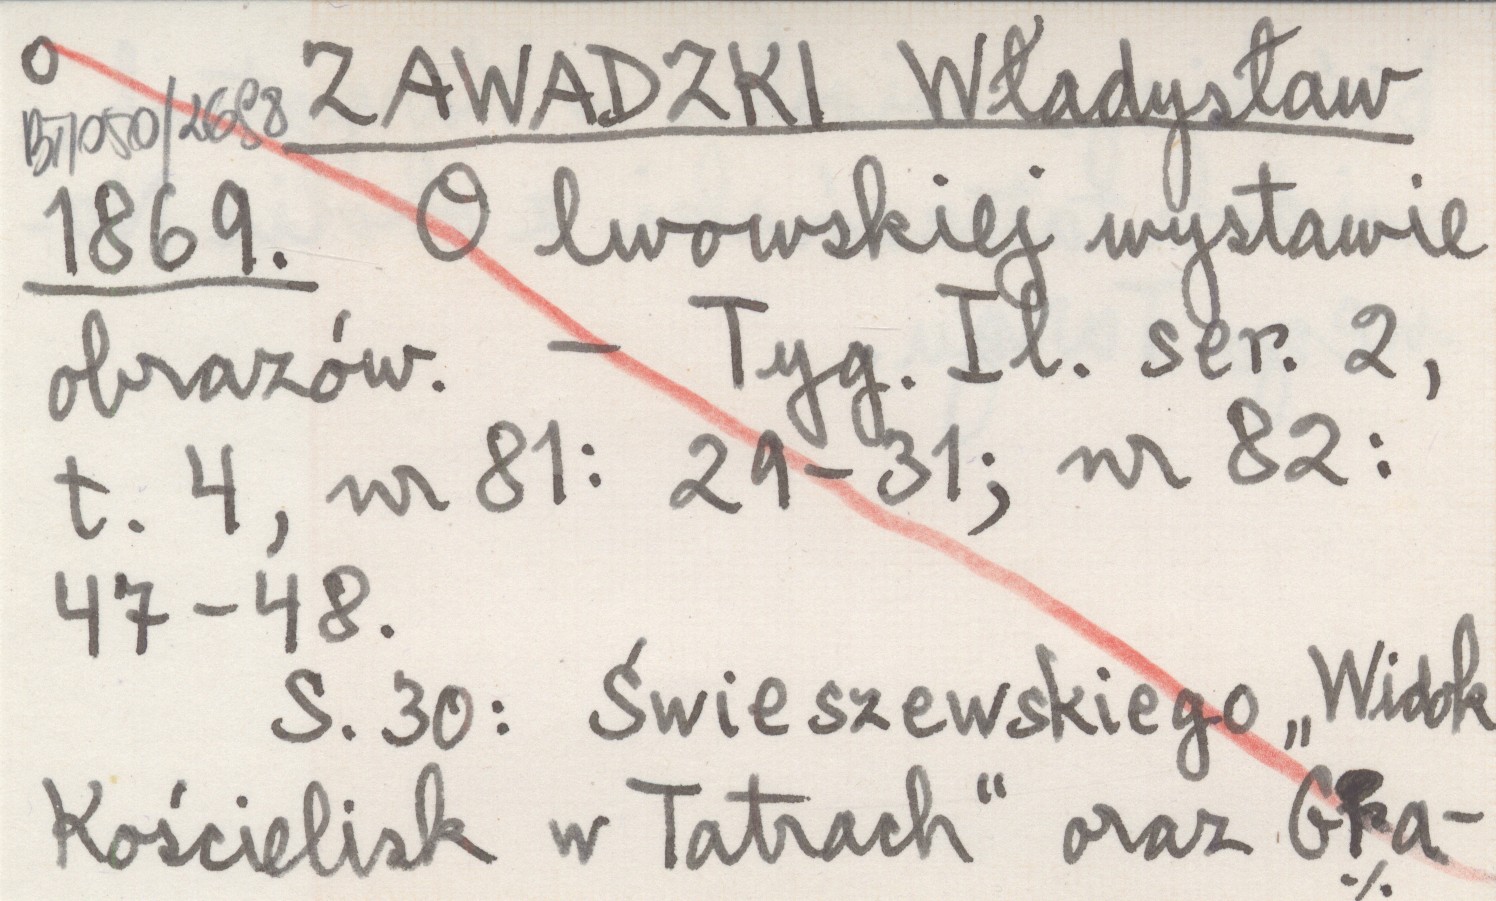 O ZAWADZKI Władysław
1869. O lwowskiej wystawie
obrazów. — Tyg. Il. ser. 2,
t. 4, nr 81: 29-31; nr 82:
47-48.
S. 30: Świeszewskiego „Widok
Kościelisk w Tatrach“ oraz
./.